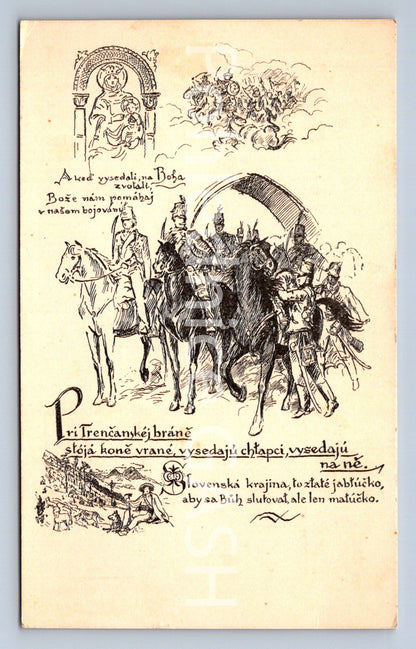 A keď vysedali, na Boha
zvolali,
Bože nám pomáhaj
v našom bojovaný.
Pri Trenčanskéj bráně
stójá koně vrané, vysedajú chłapci, vysedajú
na ně.
Slovenská krajina, to złaté jabłúčko,
aby sa Bůh slutovał, ale len małúčko.